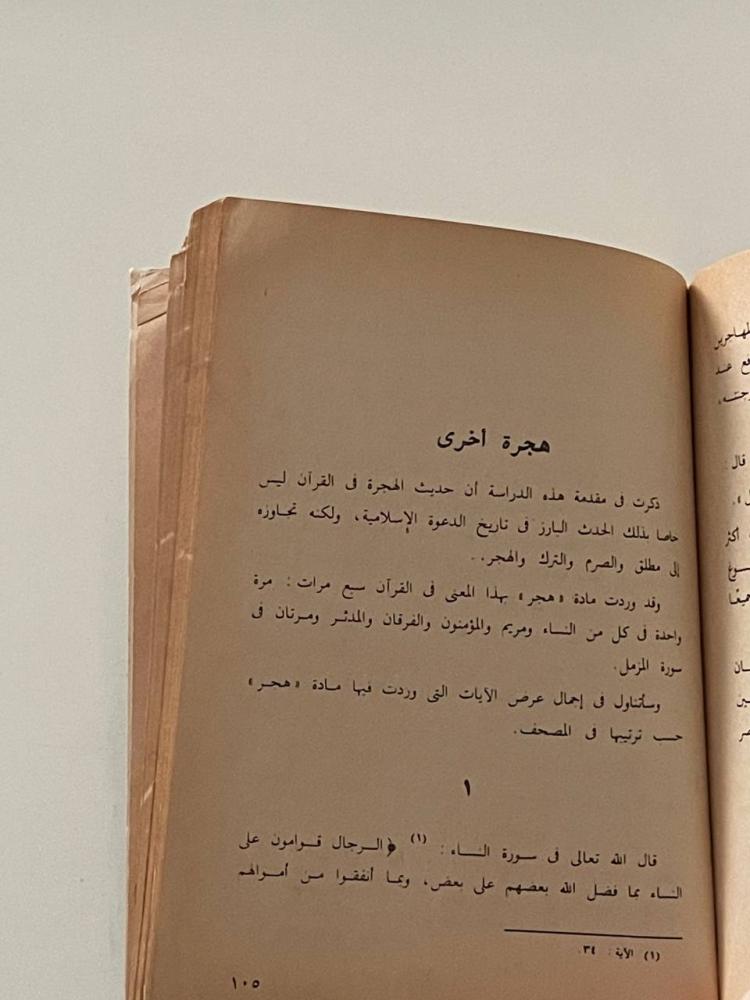 هجرة أخرى
ذكرت فى مقدمة هذه الدراسة أن حديث الهجرة فى القرآن ليس
خاصا بذلك الحدث البارز فى تاريخ الدعوة الإسلامية، ولكنه تجاوزه
إلى مطلق والصرم والترك والهجر..
وقد وردت مادة «هجر» بهذا المعنى فى القرآن سبع مرات: مرة
واحدة فى كل من النساء ومريم والمؤمنون والفرقان والمدثر ومرتان فى
سورة المزمل.
وسأتناول فى إجمال عرض الآيات التى وردت فيها مادة «هجر»
حسب ترتيبها فى المصحف.
١
قال الله تعالى فى سورة النساء: (١) ﴿الرجال قوامون على
النساء بما فضل الله بعضهم على بعض، وبما أنفقوا من أموالهم
(١) الآية: ٣٤
١٠٥
لمهاجرين
قال:
أكثر